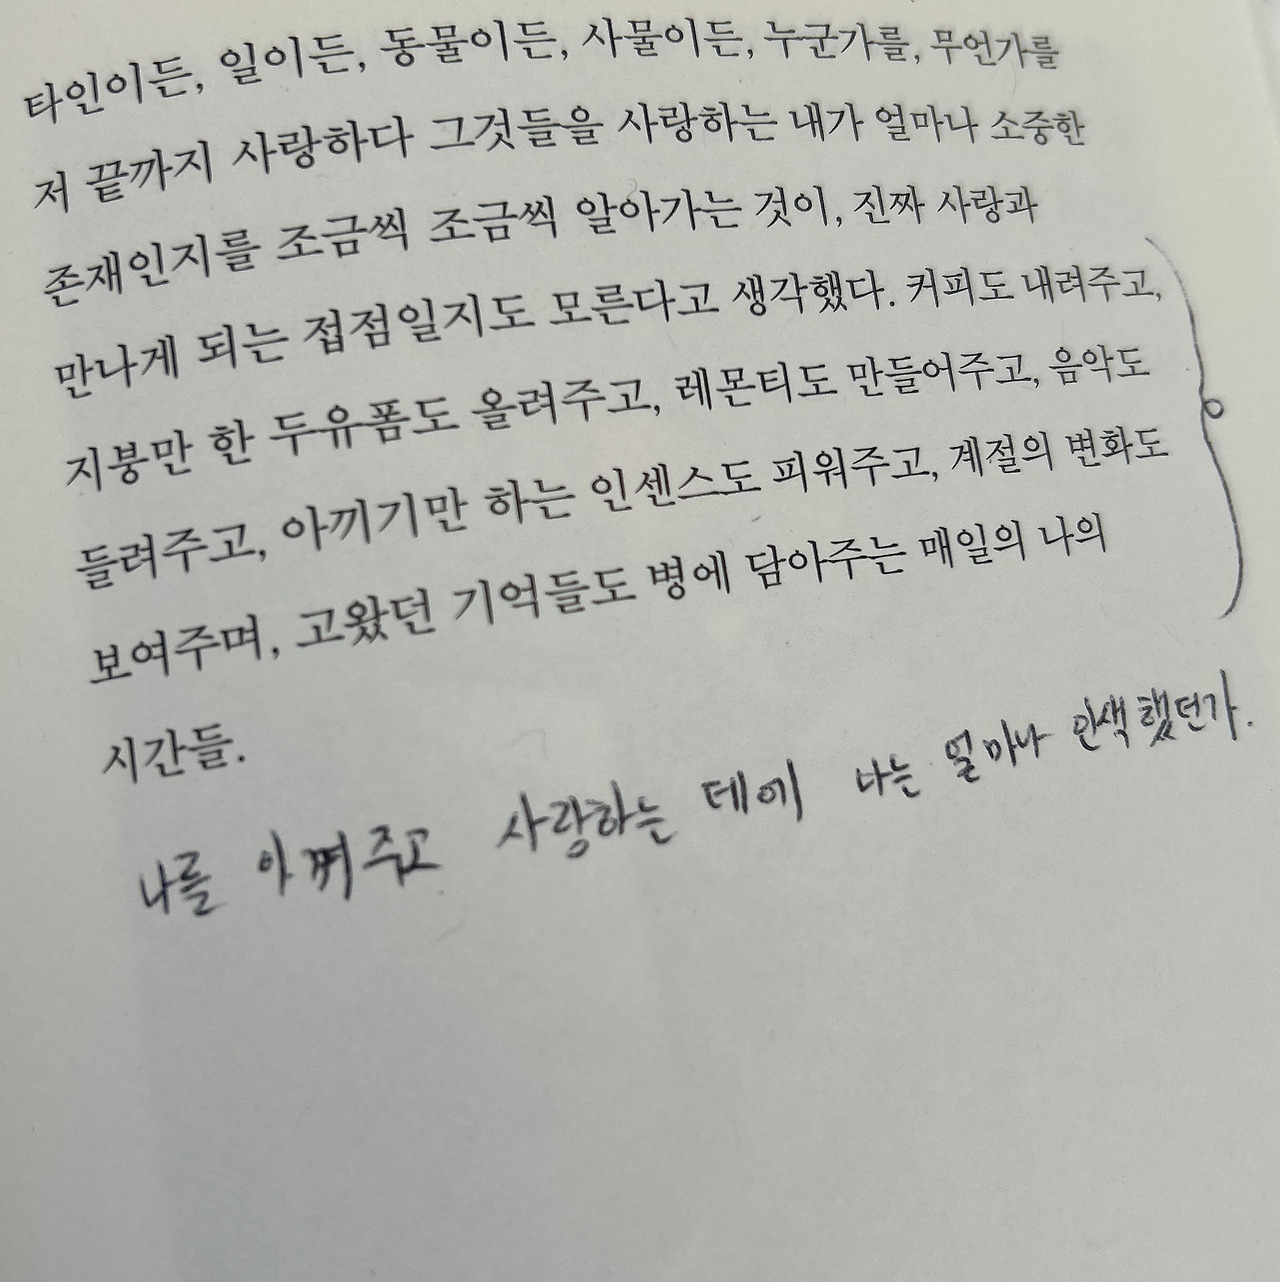 타인이든, 일이든, 동물이든, 사물이든, 누군가를, 무언가를
저 끝까지 사랑하다 그것들을 사랑하는 내가 얼마나 소중한
존재인지를 조금씩 조금씩 알아가는 것이, 진짜 사랑과
만나게 되는 접점일지도 모른다고 생각했다. 커피도 내려주고,
지붕만 한 두유폼도 올려주고, 레몬티도 만들어주고, 음악도
들려주고, 아끼기만 하는 인센스도 피워주고, 계절의 변화도
보여주며, 고왔던 기억들도 병에 담아주는 매일의 나의
시간들.
나를 아껴주고 사랑하는 데에 나는 얼마나 인색했던가.